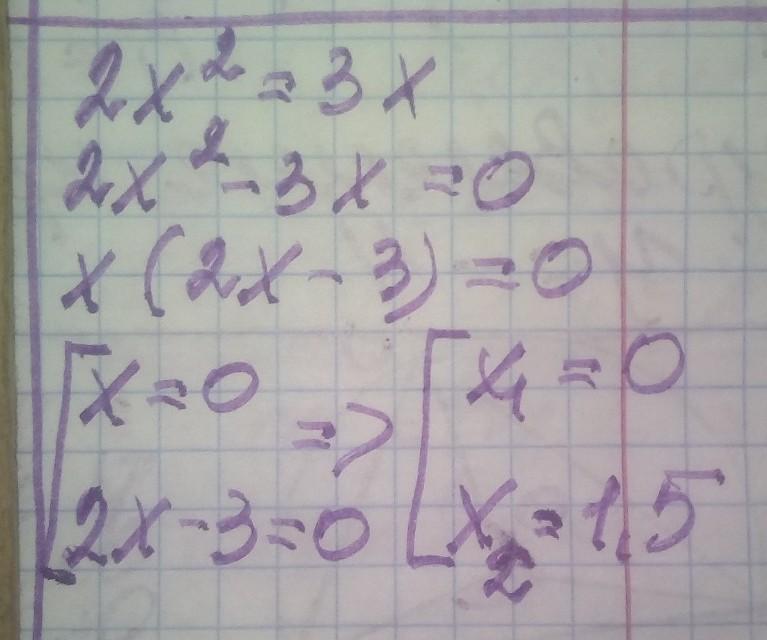 2x² = 3x
2x² - 3x = 0
x(2x - 3) = 0
[x = 0 => [x₁ = 0
2x - 3 = 0 x₂ = 1,5